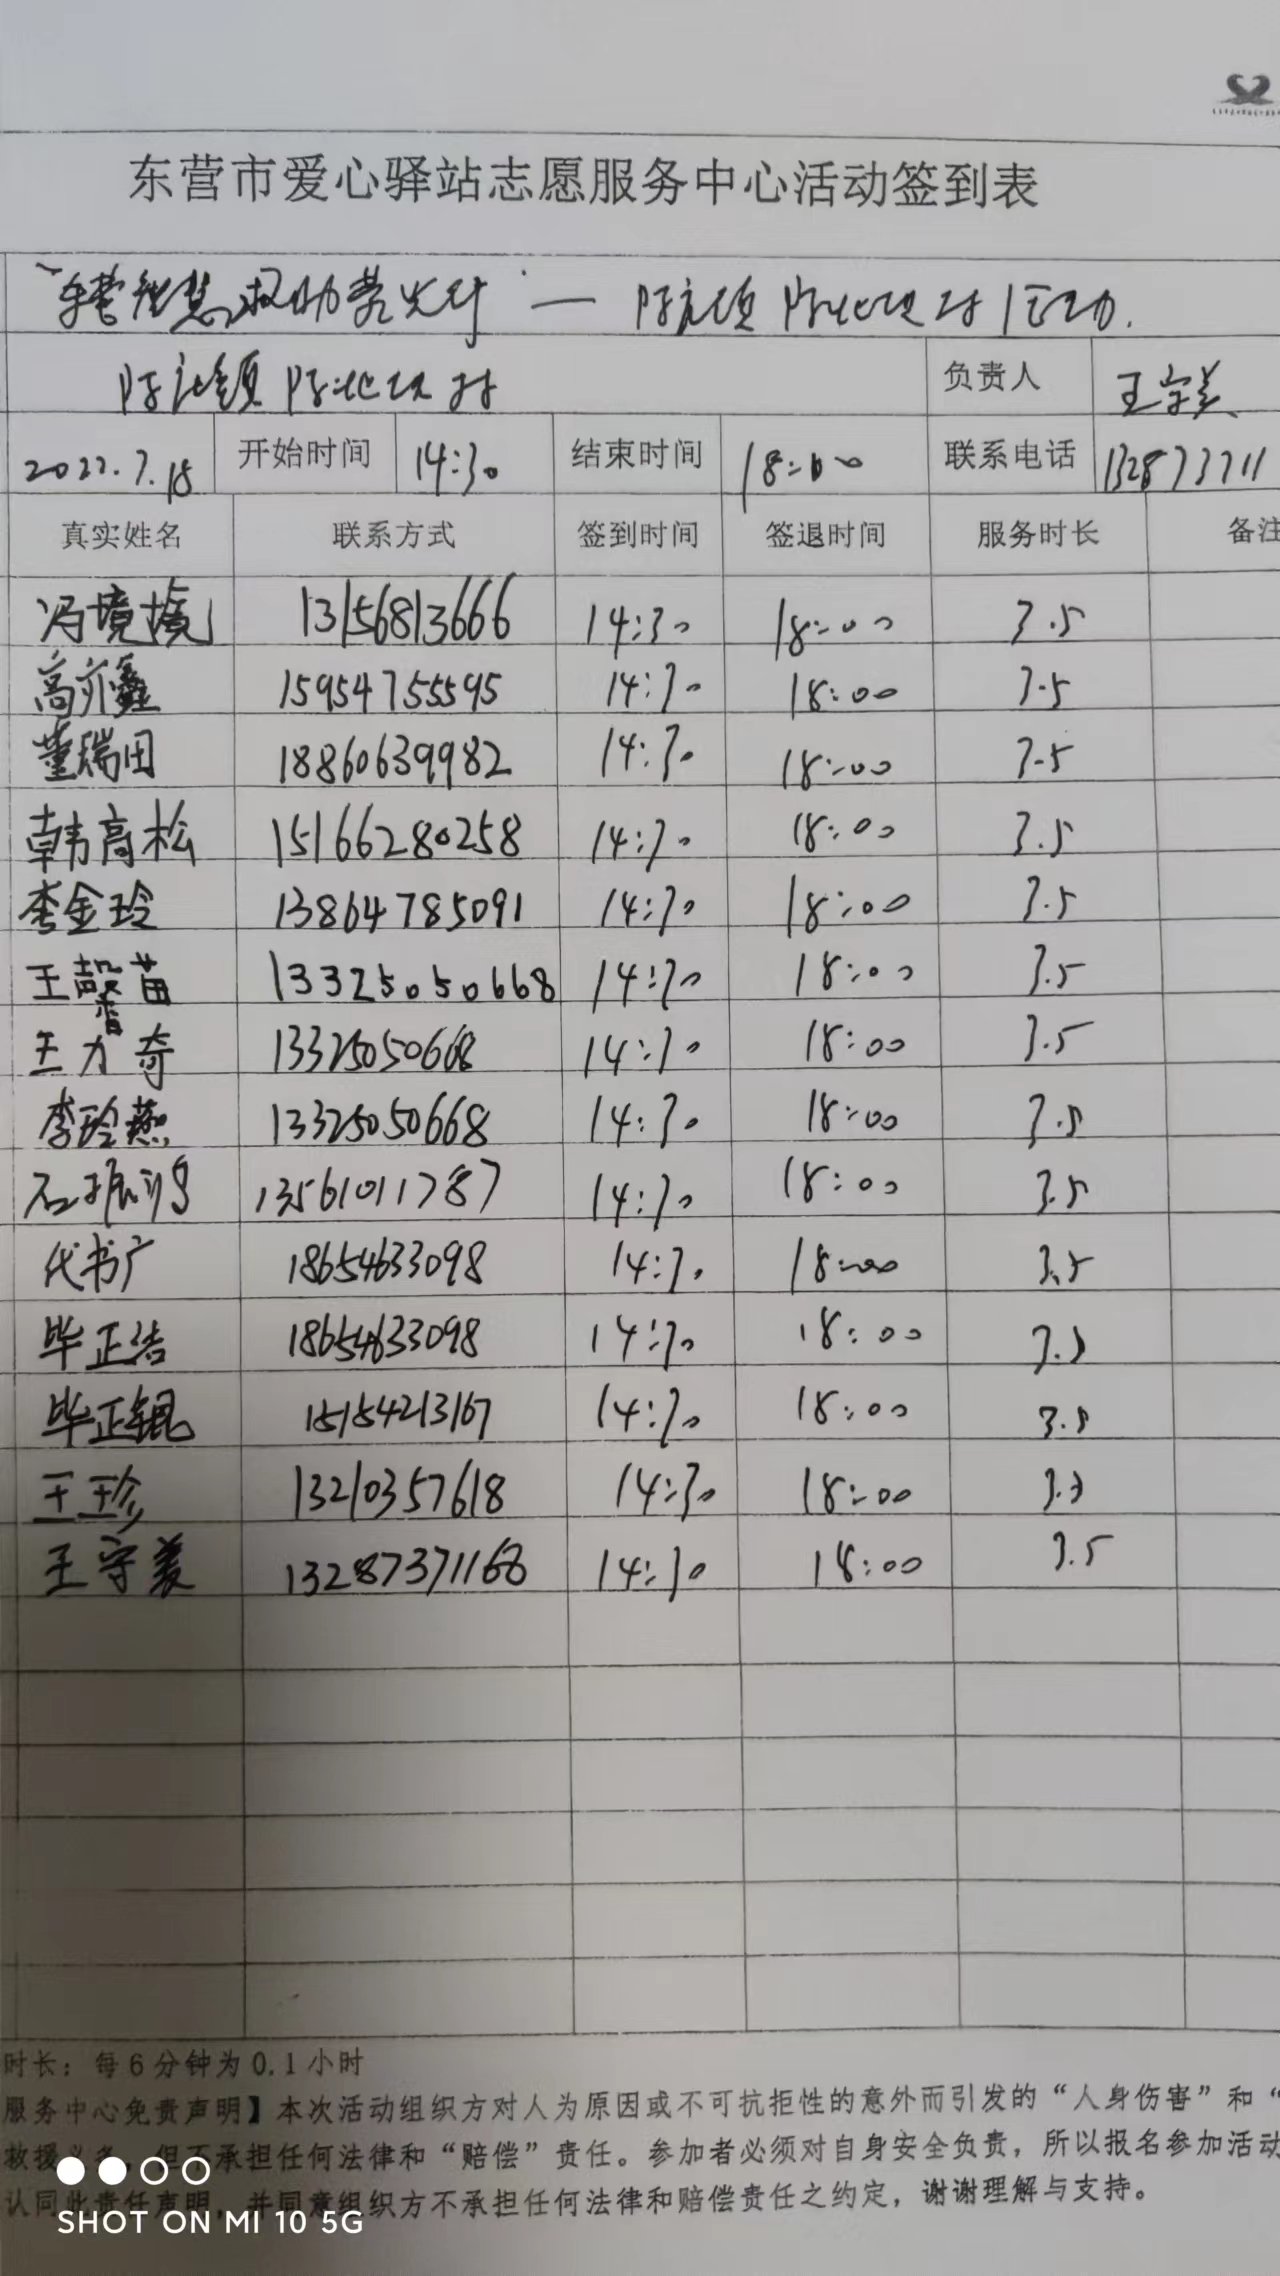 东营市爱心驿站志愿服务中心活动签到表
智慧救助 — 活动.
负责人 王守美
2022.7.18 开始时间 14:30 结束时间 18:00 联系电话 132873711
真实姓名 联系方式 签到时间 签退时间 服务时长 备注
冯境 13156813666 14:30 18:00 3.5
高亦鑫 15954755595 14:30 18:00 3.5
董瑞田 18860639982 14:30 18:00 3.5
韩高松 15166280258 14:30 18:00 3.5
李金玲 13864785091 14:30 18:00 3.5
王馨苗 13325050668 14:30 18:00 3.5
王力奇 13325050668 14:30 18:00 3.5
李玲燕 13325050668 14:30 18:00 3.5
石振 13561011787 14:30 18:00 3.5
代书广 18654633098 14:30 18:00 3.5
毕正浩 18654633098 14:30 18:00 3.5
毕正锟 15154213167 14:30 18:00 3.5
王珍 13210357618 14:30 18:00 3.5
王守美 13287371168 14:30 18:00 3.5
时长：每6分钟为0.1小时
服务中心免责声明】本次活动组织方对人为原因或不可抗拒性的意外而引发的“人身伤害”和“
救援义务，但不承担任何法律和“赔偿”责任。参加者必须对自身安全负责，所以报名参加活动
认同此责任声明，并同意组织方不承担任何法律和赔偿责任之约定，谢谢理解与支持。
SHOT ON MI 10 5G